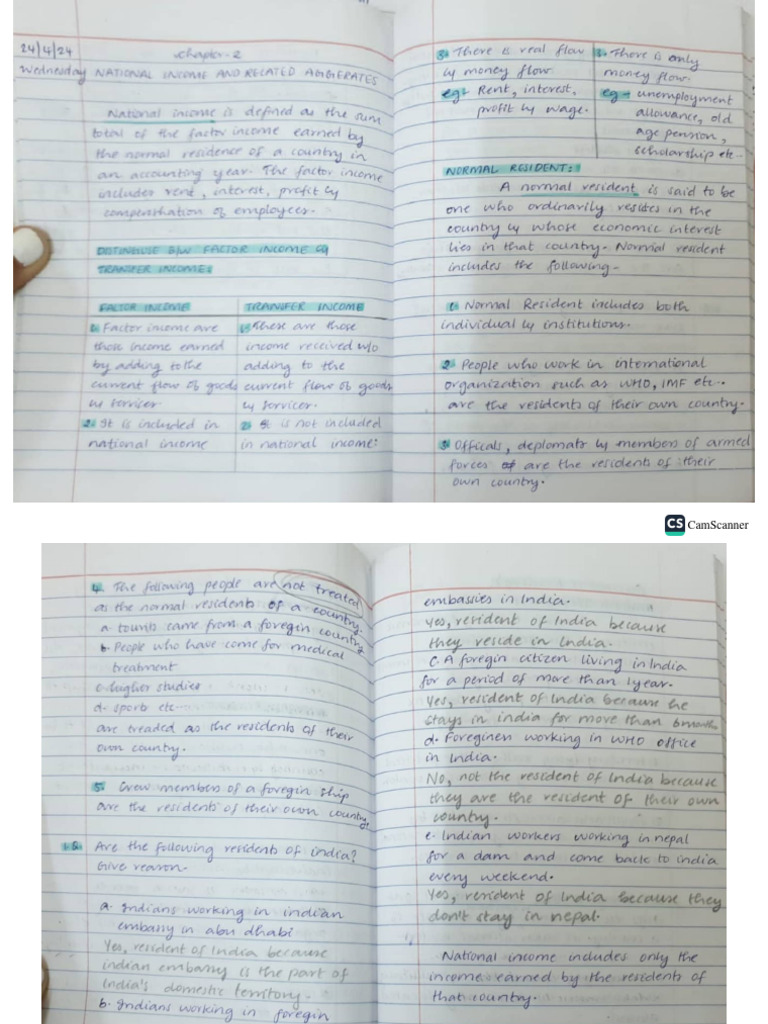 24/4/24
Chapter-2
Wednesday NATIONAL INCOME AND RELATED AGGIERATES
National income is defined as the sum
total of the factor income earned by
the normal residence of a country in
an accounting year. The factor income
includes rent, interest, profit &
compenshation of employees.
DISTINGUSE B/W FACTOR INCOME &
TRANSFER INCOME:
FACTOR INCOME
1. Factor income are
those income earned
by adding to the
current flow of goods
& servicer.
2. It is included in
national income
TRANSFER INCOME
1. These are those
income received w/o
adding to the
current flow of goods
& servicer.
2. It is not included
in national income:
3. There is real flow
& money flow.
eg- Rent, interest,
profit & wage.
3. There is only
money flow.
eg- unemployment
allowance, old
age pension,
scholarship etc-
NORMAL RESIDENT:
A normal resident is said to be
one who ordinarily resides in the
country & whose economic interest
lies in that country. Normal resident
includes the following-
1. Normal Resident includes both
individual & institutions.
2. People who work in international
organization such as WHO, IMF etc..
are the residents of their own country.
3. Officals, deplomats & members of armed
forces are the residents of their
own country.
CS CamScanner
4. The following people are not treated
as the normal residents of a country.
a tourits came from a foregin country
b. People who have come for medical
treatment
c. higher studies
d. sports etc-
are treaded as the residents of their
own country.
5. Crew members of a foregin ship
are the residents of their own country.
1.Q. Are the following residents of india?
Give reason.
a. Indians working in indian
embassy in abu dhabi
Yes, resident of India because
indian embassy is the part of
India's domestic territory.
b. Indians working in foregin
embassies in India.
Yes, resident of India because
they reside in India.
c. A foregin citizen living in India
for a period of more than 1 year.
Yes, resident of India because he
stays in india for more than 6 months
d. Foreginen working in WHO office
in India.
No, not the resident of India because
they are the resident of their own
country.
e. Indian workers working in nepal
for a dam and come back to india
every weekend.
Yes, resident of India because they
don't stay in nepal.
National income includes only the
income earned by the residents of
that country.